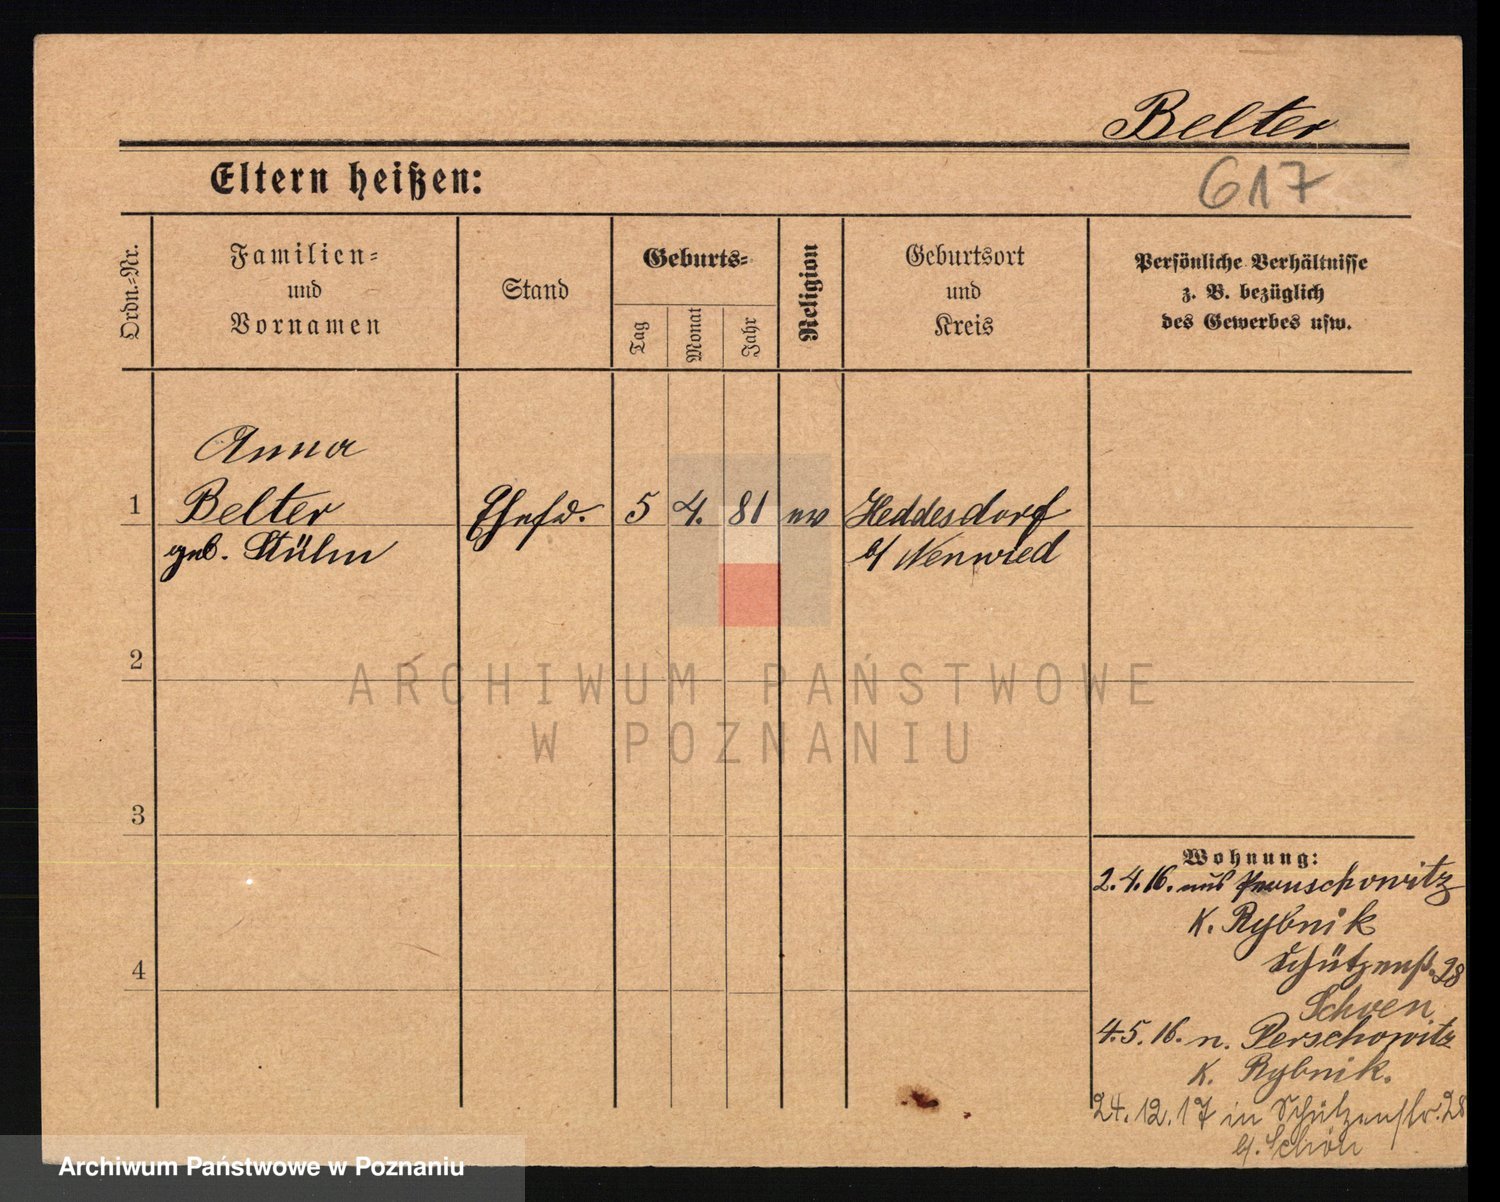 Belter
617
Eltern heißen:
Ordn.-Nr.
Familien-
und
Vornamen
Stand
Geburts-
Tag
Monat
Jahr
Religion
Geburtsort
und
Kreis
Persönliche Verhältnisse
z. B. bezüglich
des Gewerbes usw.
Anna
1 Belter Ehefr. 5 4. 81 ev Heddesdorf
geb. Stülm b/ Neuwied
2
3
4
Wohnung:
2.4.16. aus
K. Rybnik
Schützenstr. 28
Schoen
4.5.16. n. Perschowitz
K. Rybnik.
24.12.17 in Schützenstr. 28
b/. Schön
ARCHIWUM PAŃSTWOWE
W POZNANIU
Archiwum Państwowe w Poznaniu